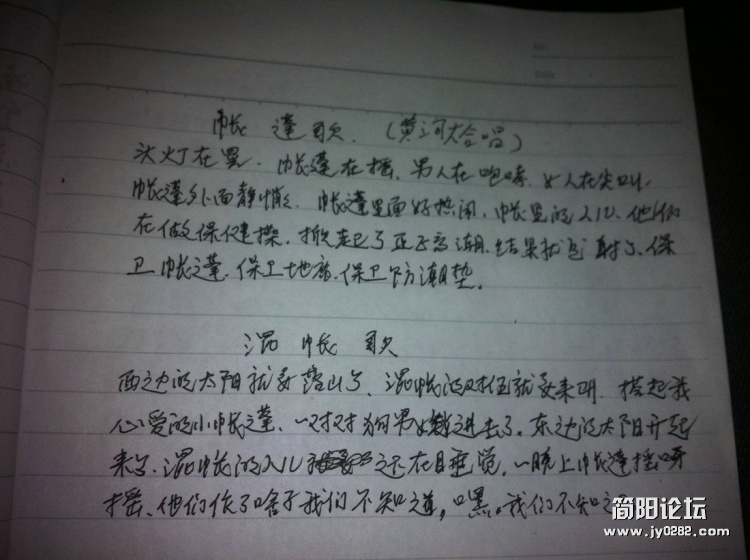 帐逢歌.（黄河大合唱）
头灯在晃.帐蓬在摇.男人在咆哮.女人在尖叫.
帐蓬外面静悄.帐蓬里面好热闹.帐里的人儿.他们
在做保健操.掀起了正了高潮.结果就射了.保
卫帐蓬.保卫地席.保卫防潮垫。
混帐歌
西边的太阳就要落山了、混帐的时候就要来叫.搭起我
心爱的小帐蓬、一对对狗男女进去了.东边的太阳升起
来了.混帐的人儿还在睡觉.一晚上帐蓬摇呀
摇、他们做了啥子我们不知道，嘿。我们不知
No
Date
简阳论坛
www.jy0282.com